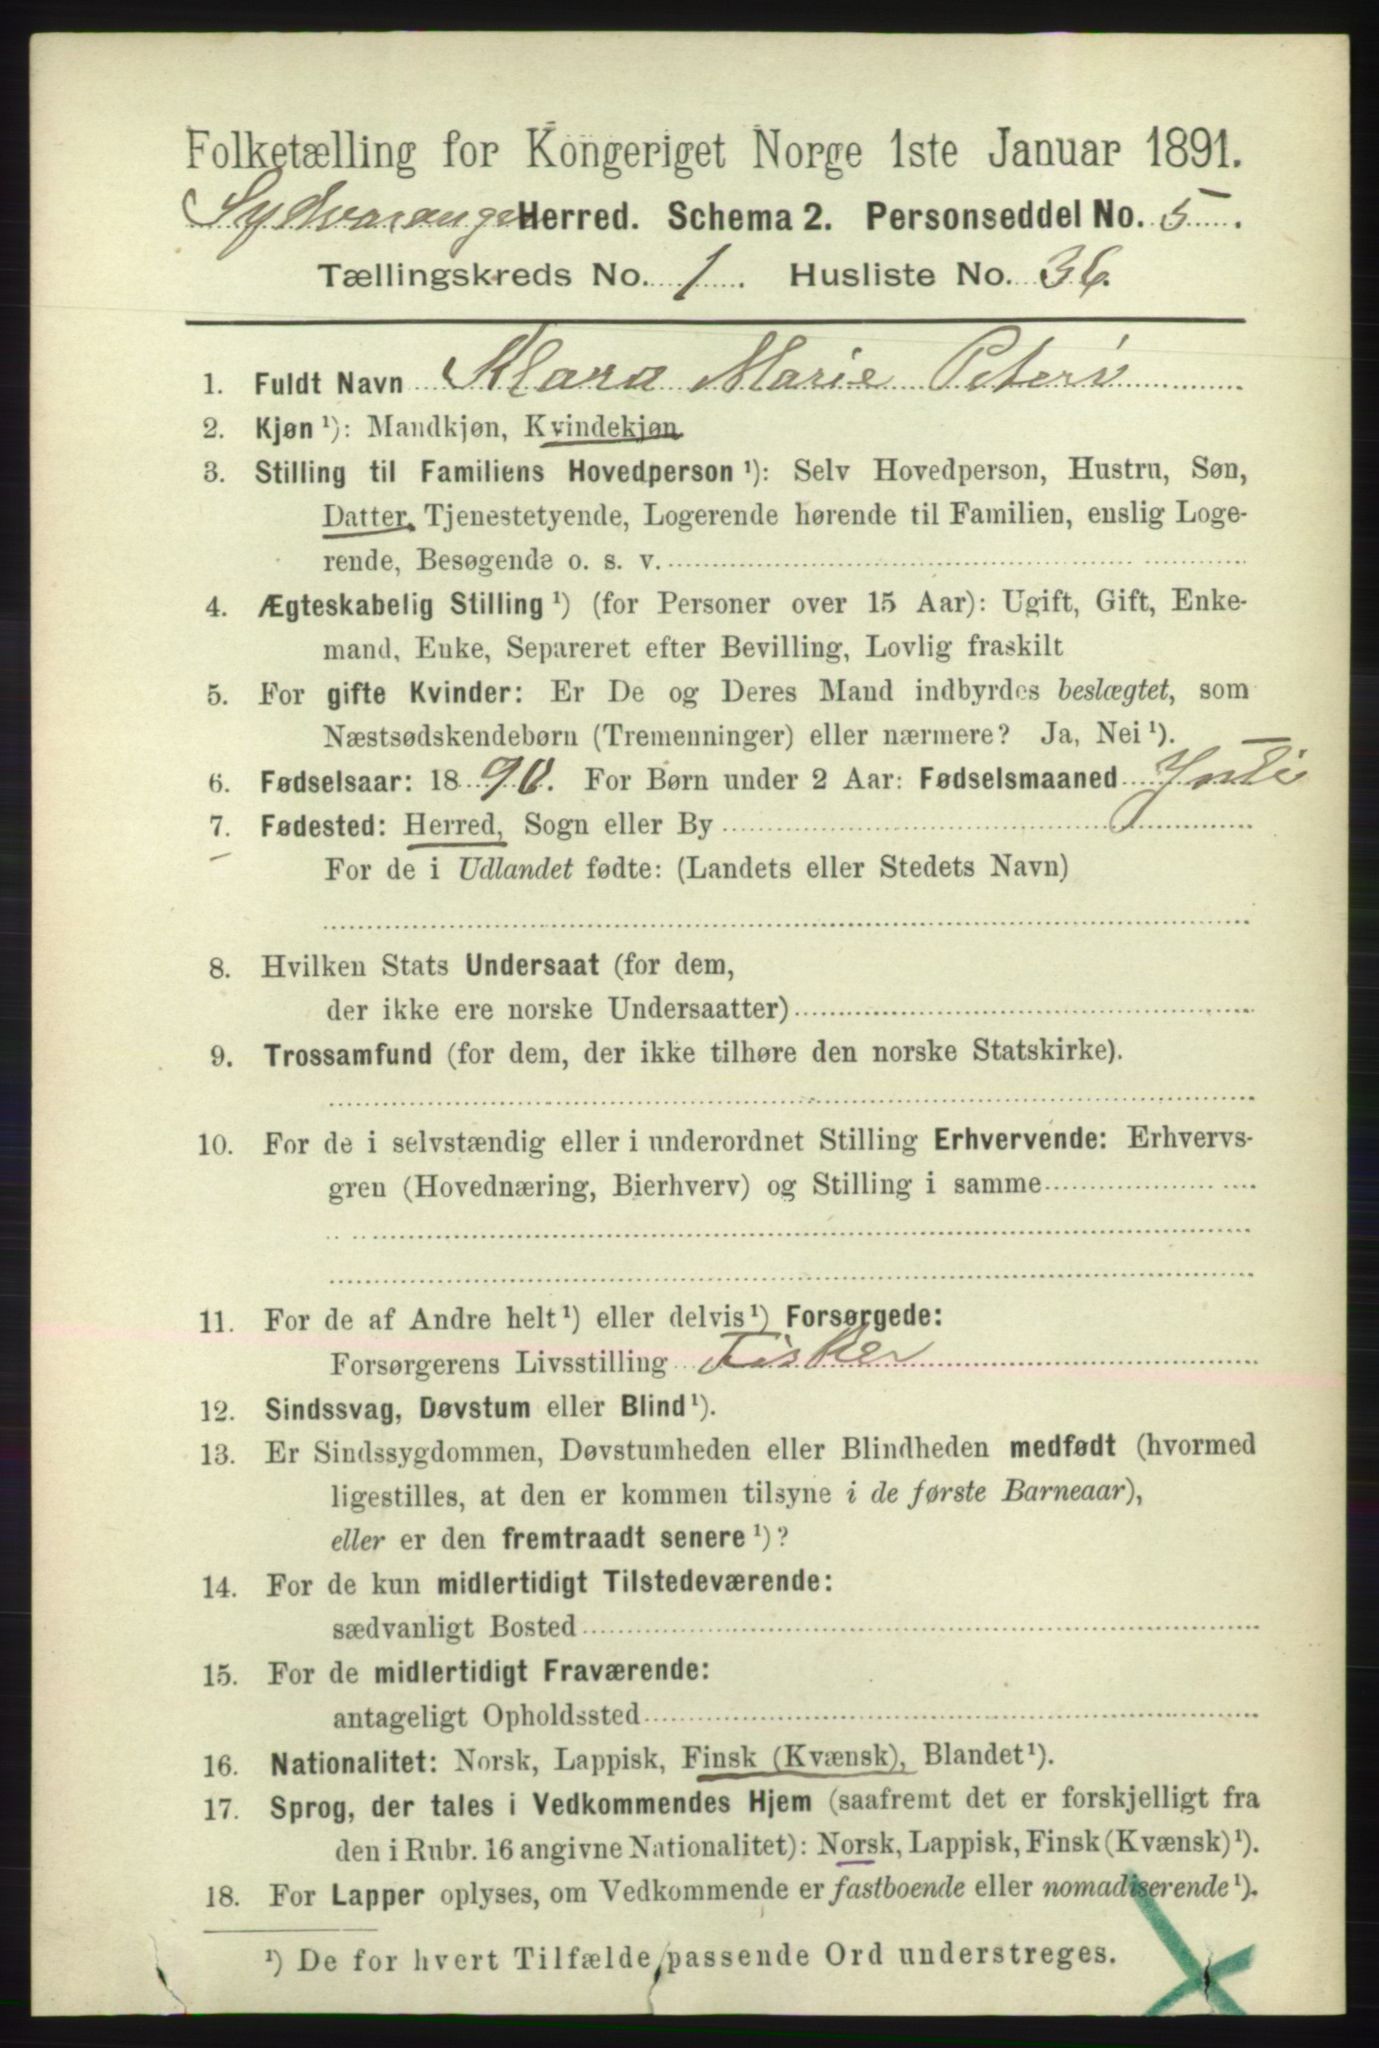 Folketælling for Kongeriget Norge 1ste Januar 1891.
Sydvaranger Herred. Schema 2. Personseddel No. 5.
Tællingskreds No. 1. Husliste No. 36.
1. Fuldt Navn Klara Marie
2. Kjøn ¹): Mandkjøn, Kvindekjøn
3. Stilling til Familiens Hovedperson ¹): Selv Hovedperson, Hustru, Søn,
Datter, Tjenestetyende, Logerende hørende til Familien, enslig Loge-
rende, Besøgende o. s. v.
4. Ægteskabelig Stilling ¹) (for Personer over 15 Aar): Ugift, Gift, Enke-
mand, Enke, Separeret efter Bevilling, Lovlig fraskilt
5. For gifte Kvinder: Er De og Deres Mand indbyrdes beslægtet, som
Næstsødskendebørn (Tremenninger) eller nærmere? Ja, Nei ¹).
6. Fødselsaar: 1890. For Børn under 2 Aar: Fødselsmaaned Juli
7. Fødested: Herred, Sogn eller By
For de i Udlandet fødte: (Landets eller Stedets Navn)
8. Hvilken Stats Undersaat (for dem,
der ikke ere norske Undersaatter)
9. Trossamfund (for dem, der ikke tilhøre den norske Statskirke).
10. For de i selvstændig eller i underordnet Stilling Erhvervende: Erhvervs-
gren (Hovednæring, Bierhverv) og Stilling i samme
11. For de af Andre helt ¹) eller delvis ¹) Forsørgede:
Forsørgerens Livsstilling Fisker
12. Sindssvag, Døvstum eller Blind ¹).
13. Er Sindssygdommen, Døvstumheden eller Blindheden medfødt (hvormed
ligestilles, at den er kommen tilsyne i de første Barneaar),
eller er den fremtraadt senere ¹)?
14. For de kun midlertidigt Tilstedeværende:
sædvanligt Bosted
15. For de midlertidigt Fraværende:
antageligt Opholdssted
16. Nationalitet: Norsk, Lappisk, Finsk (Kvænsk), Blandet ¹).
17. Sprog, der tales i Vedkommendes Hjem (saafremt det er forskjelligt fra
den i Rubr. 16 angivne Nationalitet): Norsk, Lappisk, Finsk (Kvænsk) ¹).
18. For Lapper oplyses, om Vedkommende er fastboende eller nomadiserende ¹).
¹) De for hvert Tilfælde passende Ord understreges.